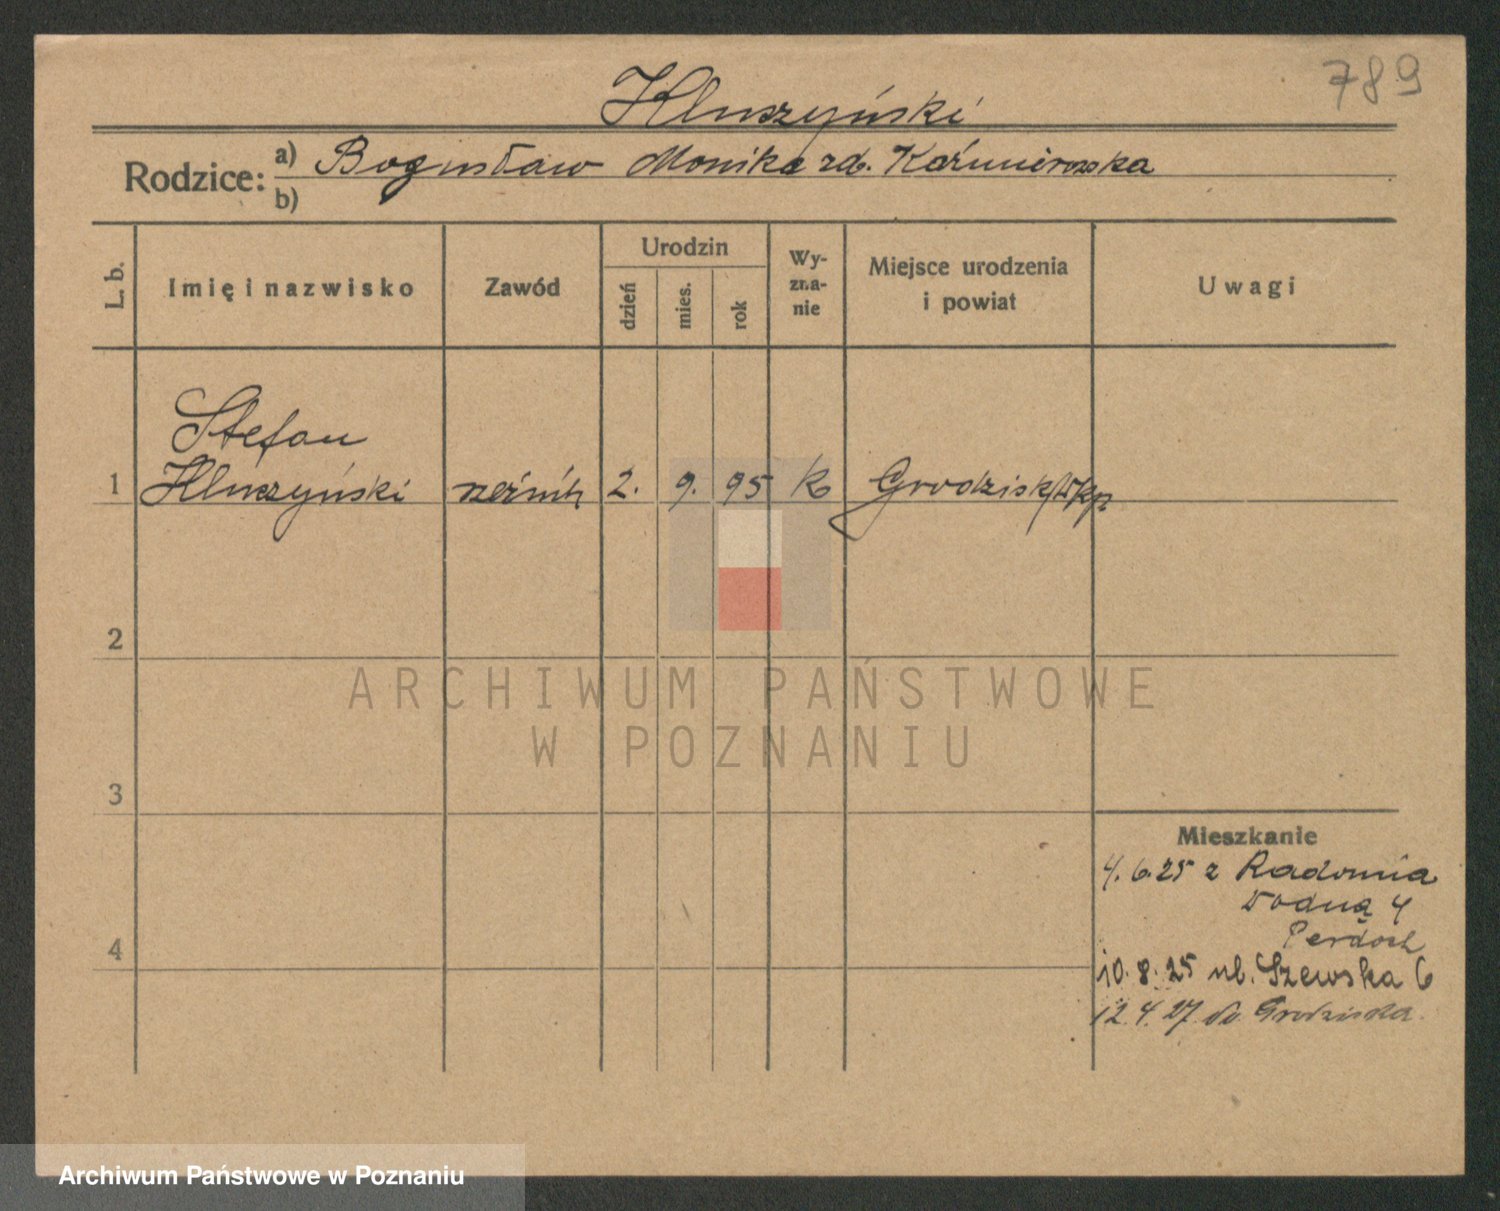 789
Kluszyński
Rodzice: a) Bogusław Monika zd. Kaźmierowska
b)
L. b. Imię i nazwisko Zawód Urodzin dzień mies. rok Wy-zna-nie Miejsce urodzenia i powiat Uwagi
Stefan
1 Kluszyński rzeźnik 2. 9. 95 k Grodzisk/Wkp
2
ARCHIWUM PAŃSTWOWE
W POZNANIU
3
Mieszkanie
4. 6. 25 z Radomia
Wodną 4
4
10. 8. 25 ul. Szewska 6
12. 4. 27. do Grodziska.
Archiwum Państwowe w Poznaniu